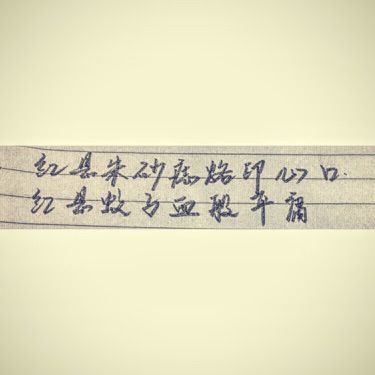 红是朱砂痣烙印心口.
红是蚊子血般平庸